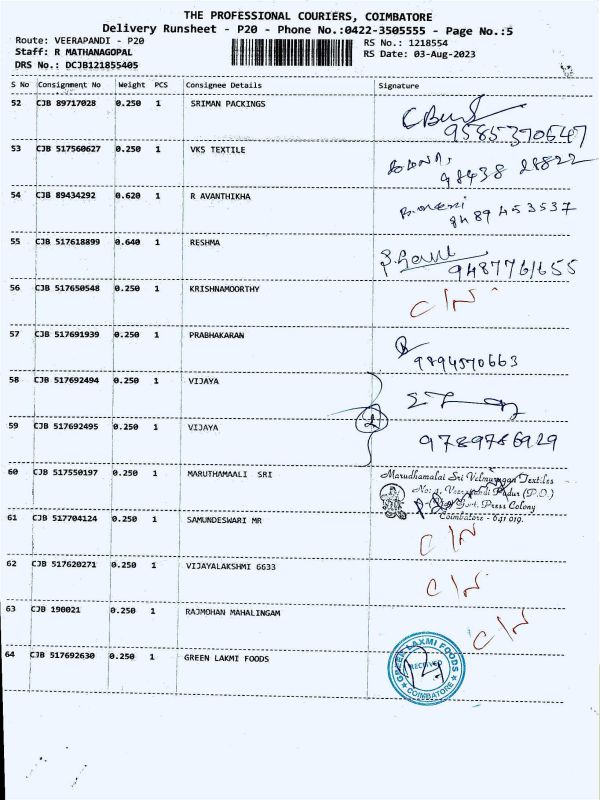 THE PROFESSIONAL COURIERS, COIMBATORE
Delivery Runsheet - P20 - Phone No.:0422-3505555 - Page No.:5
Route: VEERAPANDI - P20
RS No.: 1218554
Staff: R MATHANAGOPAL
RS Date: 03-Aug-2023
DRS No.: DCJB121855405
S No Consignment No Weight PCS Consignee Details Signature
52 CJB 89717028 0.250 1 SRIMAN PACKINGS
9585370647
53 CJB 517560627 0.250 1 VKS TEXTILE
98438 28822
54 CJB 89434292 0.620 1 R AVANTHIKHA
8489453537
55 CJB 517618899 0.640 1 RESHMA
9487761655
56 CJB 517650548 0.250 1 KRISHNAMOORTHY C/N
57 CJB 517691939 0.250 1 PRABHAKARAN
9894570663
58 CJB 517692494 0.250 1 VIJAYA
59 CJB 517692495 0.250 1 VIJAYA 2 9789786929
60 CJB 517550197 0.250 1 MARUTHAMAALI SRI Marudhamalai Sri Velmurugan Textiles
Press Colony
Coimbatore - 641 019.
61 CJB 517704124 0.250 1 SAMUNDESWARI MR C/N
62 CJB 517620271 0.250 1 VIJAYALAKSHMI 6633 C/N
63 CJB 190021 0.250 1 RAJMOHAN MAHALINGAM C/N
64 CJB 517692630 0.250 1 GREEN LAKMI FOODS
GREEN LAXMI FOODS
RECEIVED
COIMBATORE